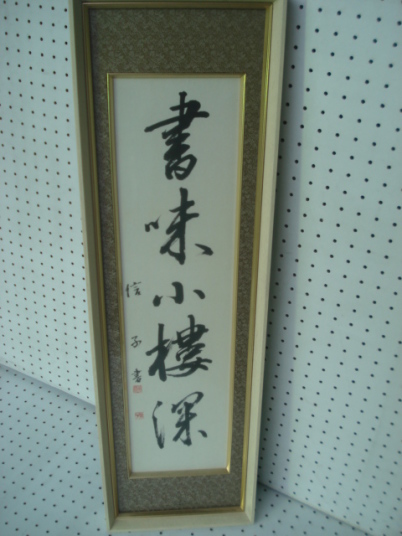 書味小樓深
信子書